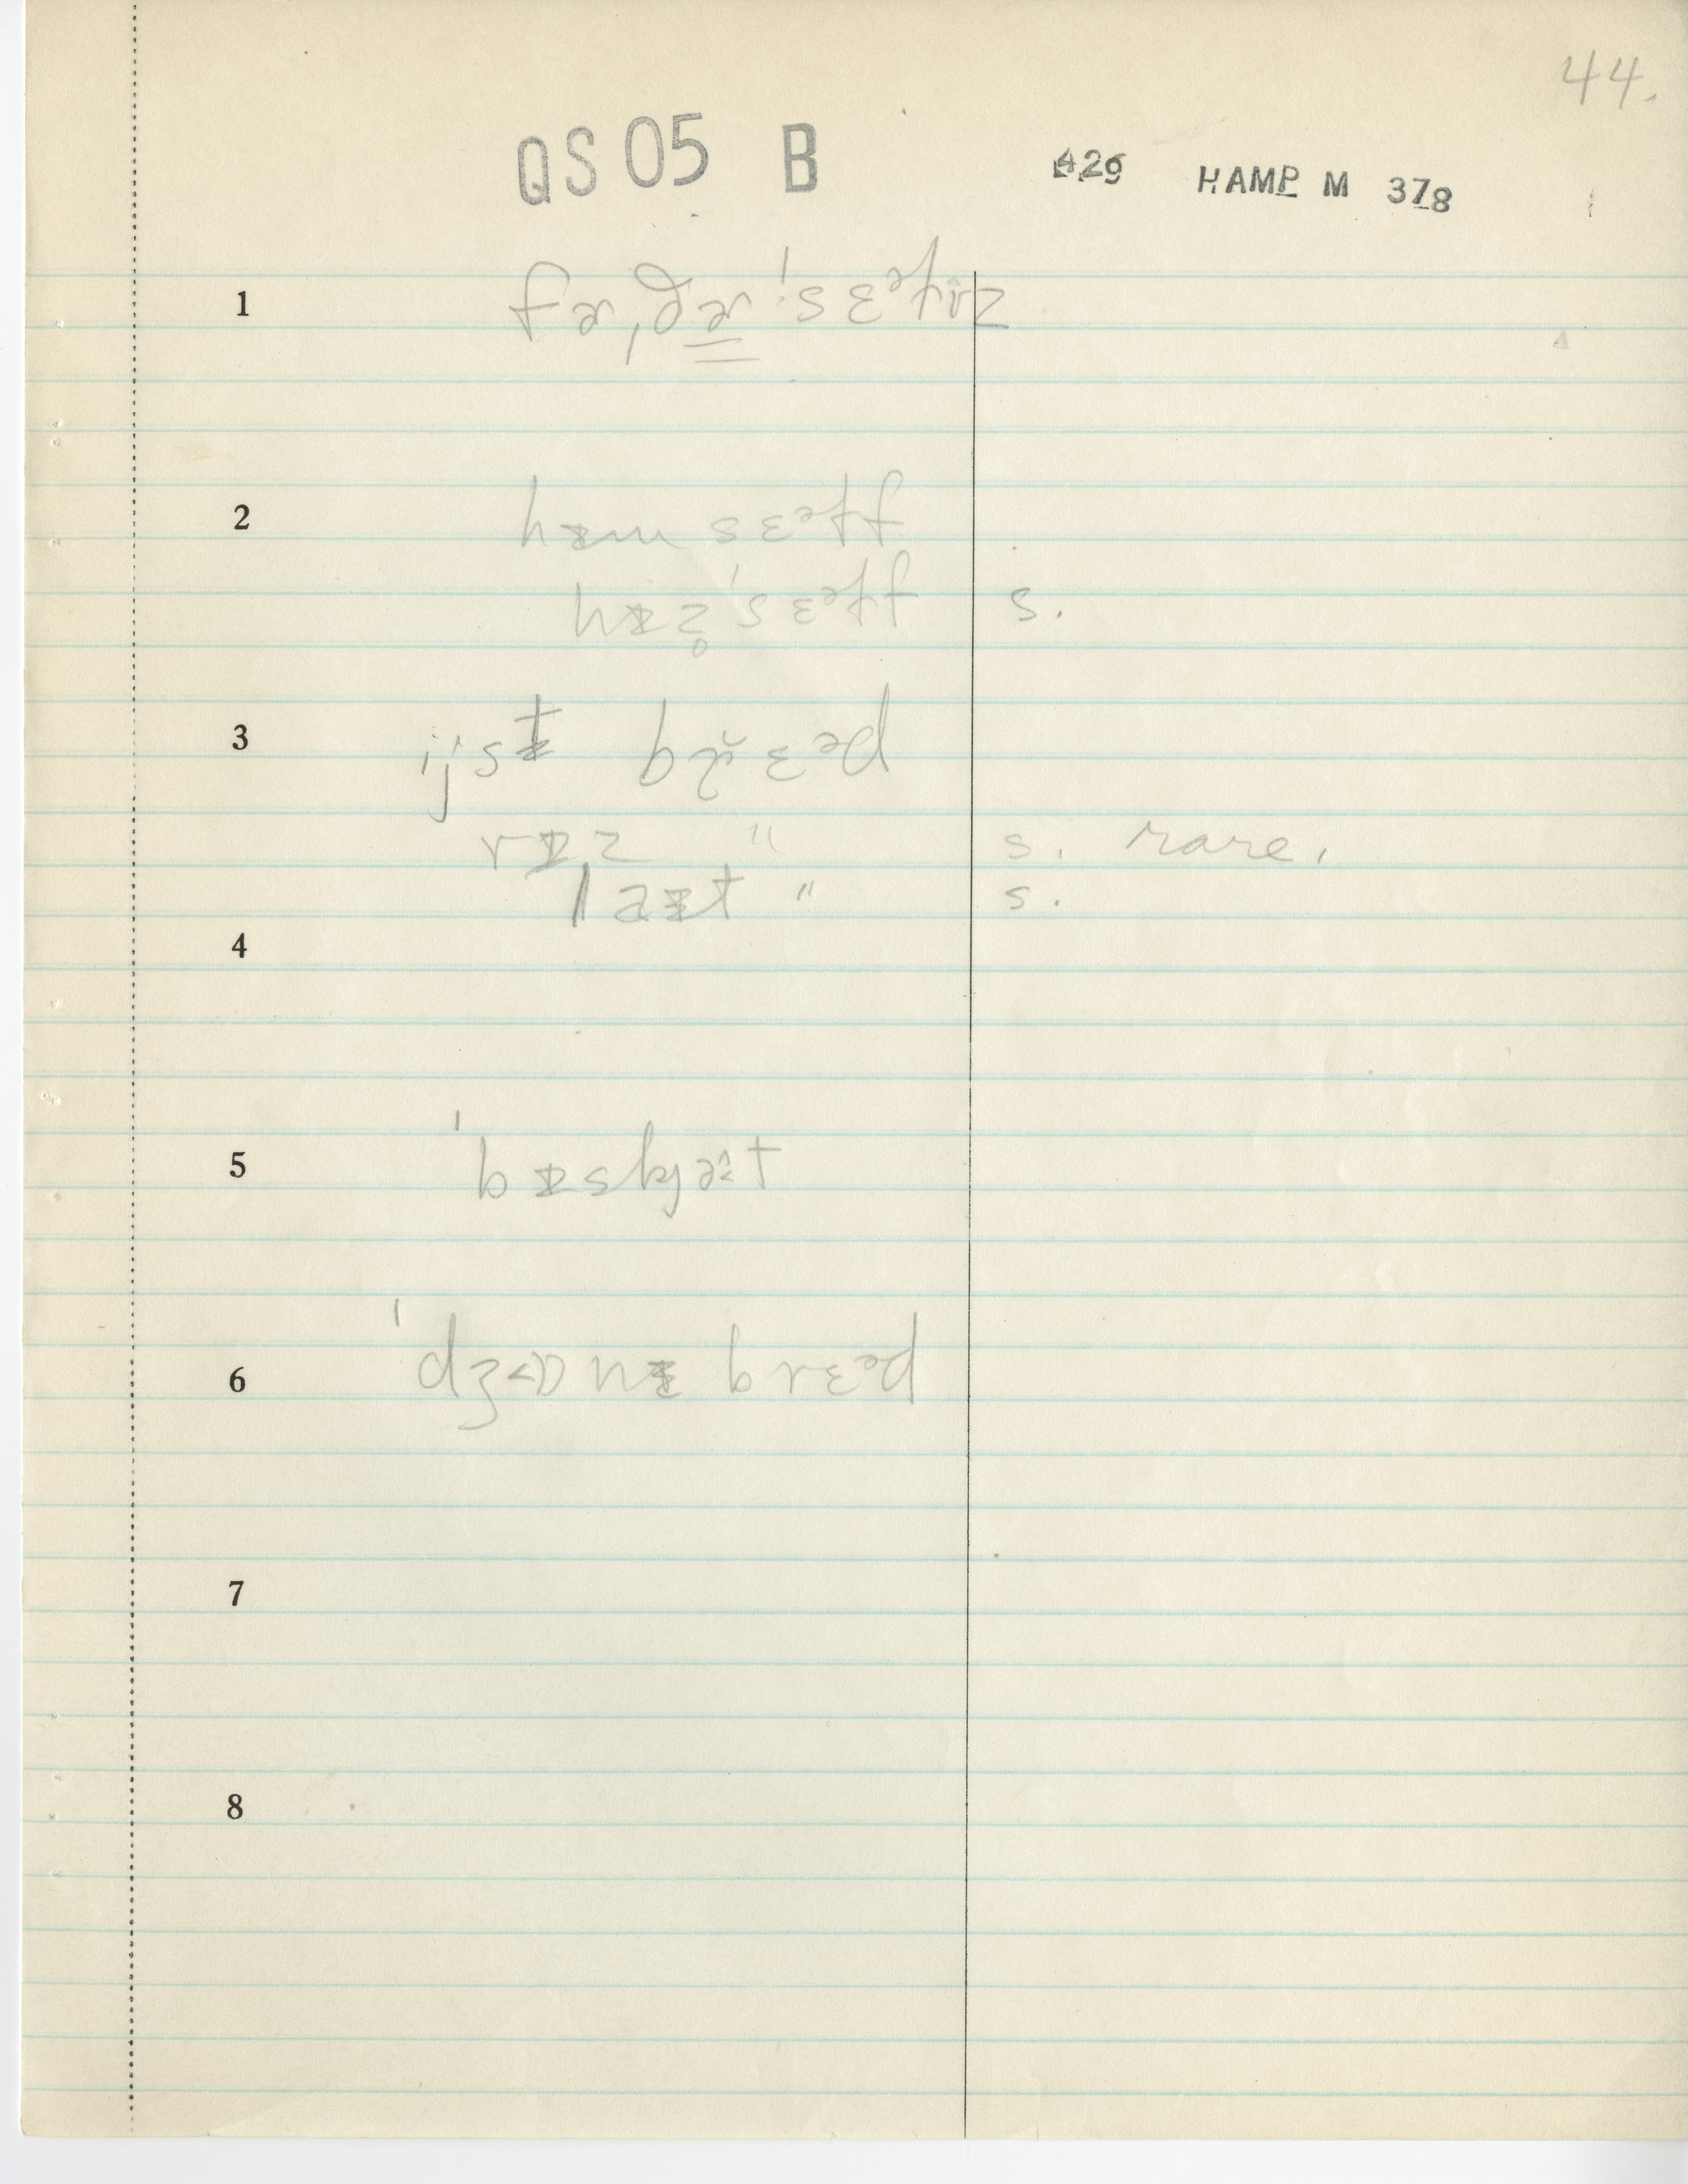 44.
QS05 B 426 HAMP M 378
1 fɚˌðɚˈsɛᵊɫvz
2 hɪ̵m sɛᵊɫf
hɪ̵z̥ˈsɛᵊɫf s.
3 ijstɪ̵ br̆ɛᵊd
rɪ̵z " s. rare.
laɪ̵t " s.
4
5 ˈbɪ̵skjə̂t
6 ˈdʒɒnɪ̵ brɛᵊd
7
8